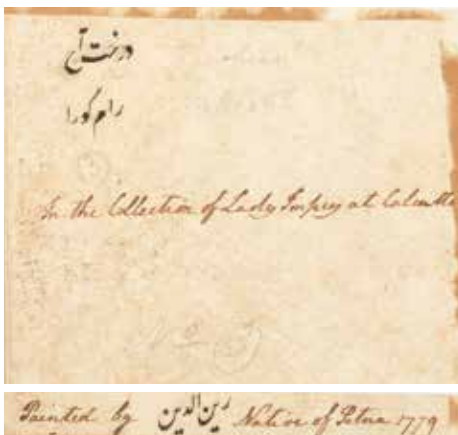 درخت آچ
رام گورا
In the Collection of Lady Impey at Calcutta
Painted by زين الدين Native of Patna 1779